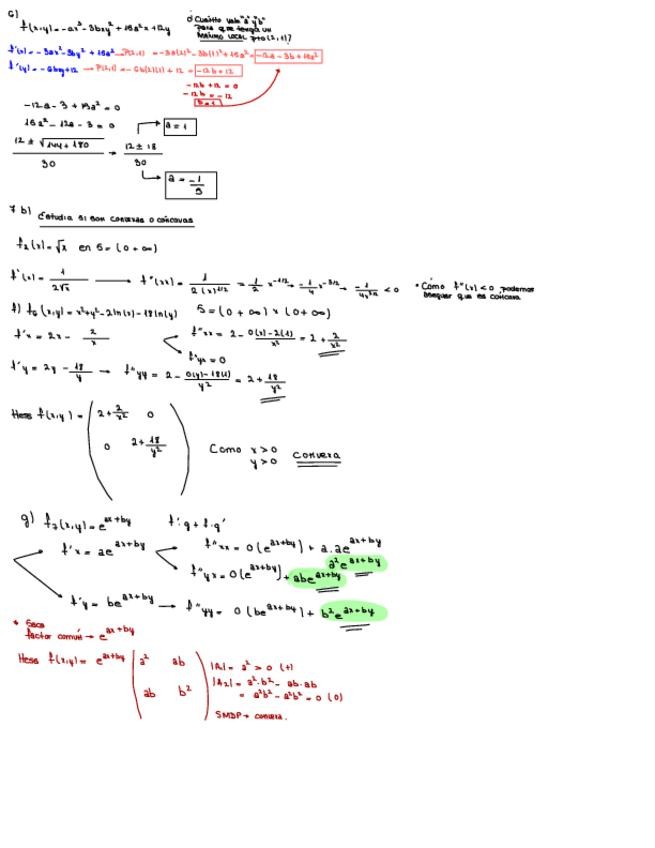 c)
f(x,y) = -ax³ - 3bxy² + 15a²x + 12y ¿Cuánto vale "a" y "b"
para que tenga un
MÁXIMO LOCAL pto (2,1)?
f'(x) = -3ax² - 3by² + 15a² → P(2,1) = -3a(2)² - 3b(1)² + 15a² = -12a - 3b + 15a²
f'(y) = -6bxy + 12 → P(2,1) = -6b(2)(1) + 12 = -12b + 12
-12b + 12 = 0
-12b = -12
b = 1
-12a - 3 + 15a² = 0
15a² - 12a - 3 = 0
a = 1
12 ± √144 + 180 / 30 → 12 ± 18 / 30
a = -1/5
7 b) Estudia si son convexas o cóncavas
f₂(x) = √x en S = (0 + ∞)
f'(x) = 1 / 2√x → f''(xx) = 1 / 2(x)^1/2 = 1/2 x^-1/2 → -1/4 x^-3/2 → -1 / 4x^3/2 < 0 * Como f''(x) < 0 podemos
asegurar que es cóncava
f) f₆(x,y) = x² + y² - 2ln(x) - 18ln(y) S = (0 + ∞) x (0 + ∞)
f'x = 2x - 2/x f''xx = 2 - 0(x) - 2(1) / x² = 2 + 2/x²
f''yx = 0
f'y = 2y - 18/y → f''yy = 2 - 0(y) - 18(1) / y² = 2 + 18/y²
Hess f(x,y) = ( 2 + 2/x² 0
0 2 + 18/y² )
Como x > 0
y > 0 convexa
g) f₇(x,y) = e^ax+by f'·g + f·g'
f'x = ae^ax+by f''xx = 0(e^ax+by) + a·ae^ax+by
a²e^ax+by
f''yx = 0(e^ax+by) + abe^ax+by
f'y = be^ax+by → f''yy = 0(be^ax+by) + b²e^ax+by
* Saco
factor común → e^ax+by
Hess f(x,y) = e^ax+by ( a² ab
ab b² )
|A₁| = a² > 0 (+)
|A₂| = a²·b² - ab·ab
= a²b² - a²b² = 0 (0)
SMDP → convexa.